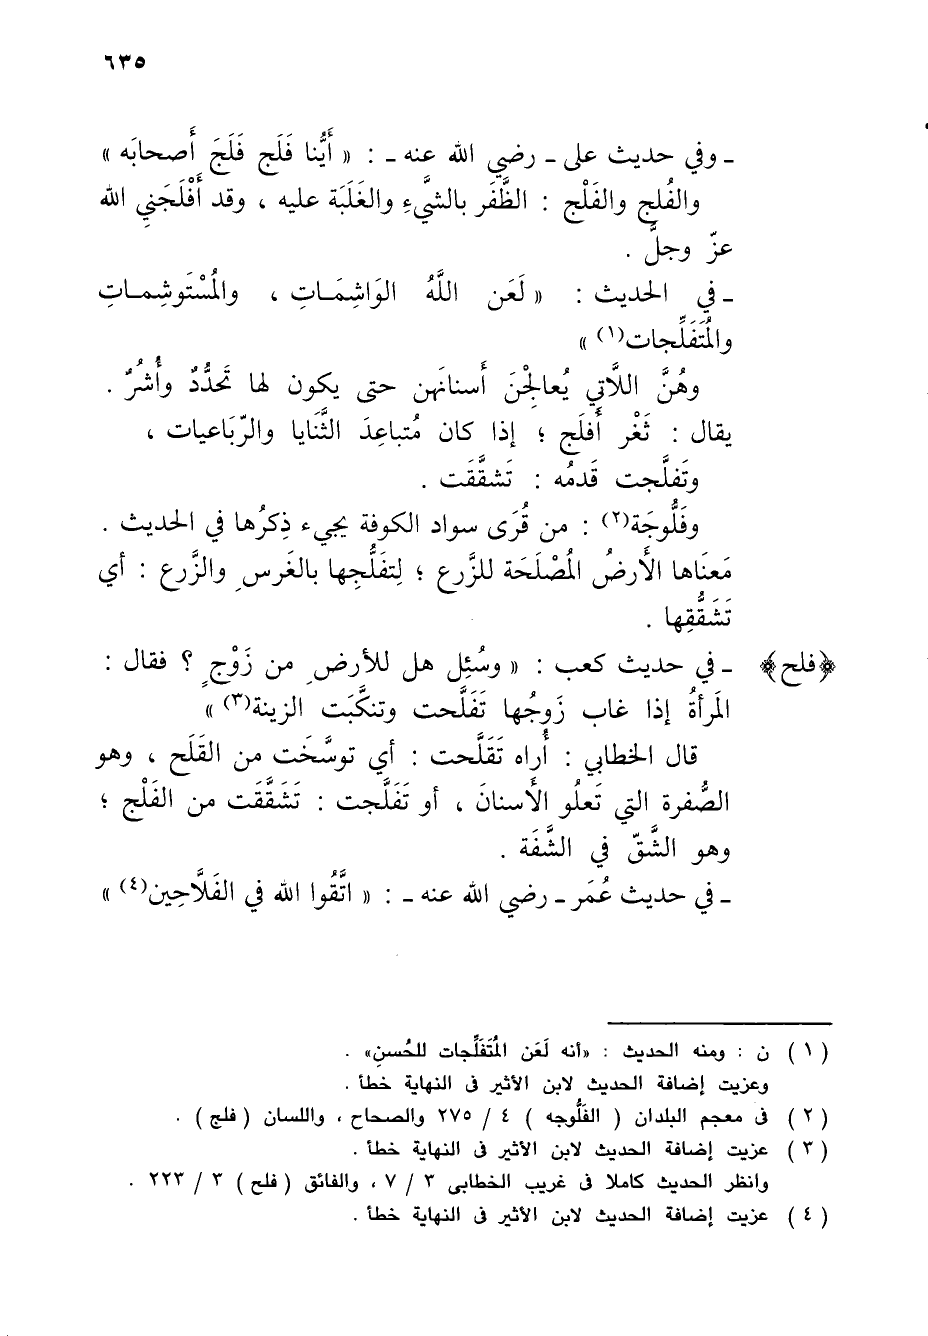 ٦٣٥
ـ وفي حديث على ـ رضي الله عنه ـ : « أَيُّنا فَلَج فَلَجَ أَصحابَه »
والفُلج والفَلْج : الظَّفَر بالشَّيءِ والغَلَبَة عليه ، وقد أَفْلَجَنيِ الله
عزّ وجلَّ .
ـ في الحديث : « لَعَن اللَّهُ الوَاشِمَـاتِ ، والمُسْتَوشِمـاتِ
والمُتَفَلِّجات(١) »
وهُنَّ اللَّاتي يُعالِجْنَ أَسنانَهن حتى يكون لها تَحَدُّدٌ وأُشُرٌ .
يقال : ثَغْر أَفلَج ؛ إذا كان مُتباعِدَ الثَّنَايا والرّبَاعيات ،
وتَفلَّجت قَدمُه : تَشقَّقَت .
وفَلُّوجَة(٢) : من قُرَى سواد الكوفة يجيء ذِكرُها في الحديث .
مَعنَاها الأَرضُ المُصْلَحَة للزَّرع ؛ لِتفَلُّجِها بالغَرسِ والزَّرع : أي
تَشَقُّقِها .
﴿فلح﴾ ـ في حديث كعب : « وسُئِل هل للأرضِ من زَوْجٍ ؟ فقال :
المَرأةُ إذا غاب زَوجُها تَفَلَّحت وتنكَّبَت الزينة(٣) »
قال الخطابي : أُراه تَقَلَّحت : أي توسَّخَت من القَلَح ، وهو
الصُّفرة التي تَعلُو الأسنانَ ، أو تَفَلَّجت : تَشَقَّقَت من الفَلْج ؛
وهو الشَّقّ في الشَّفَة .
ـ في حديث عُمَر ـ رضي الله عنه ـ : « اتَّقُوا الله في الفَلَّاحِين(٤) »
( ١ ) ن : ومنه الحديث : «أنه لَعَن المُتَفَلِّجات للحُسنِ» .
وعزيت إضافة الحديث لابن الأثير فى النهاية خطأ .
( ٢ ) فى معجم البلدان ( الفَلُّوجه ) ٤ / ٢٧٥ والصحاح ، واللسان ( فلج ) .
( ٣ ) عزيت إضافة الحديث لابن الأثير فى النهاية خطأ .
وانظر الحديث كاملا فى غريب الخطابى ٣ / ٧ ، والفائق ( فلح ) ٣ / ٢٢٣ .
( ٤ ) عزيت إضافة الحديث لابن الأثير فى النهاية خطأ .